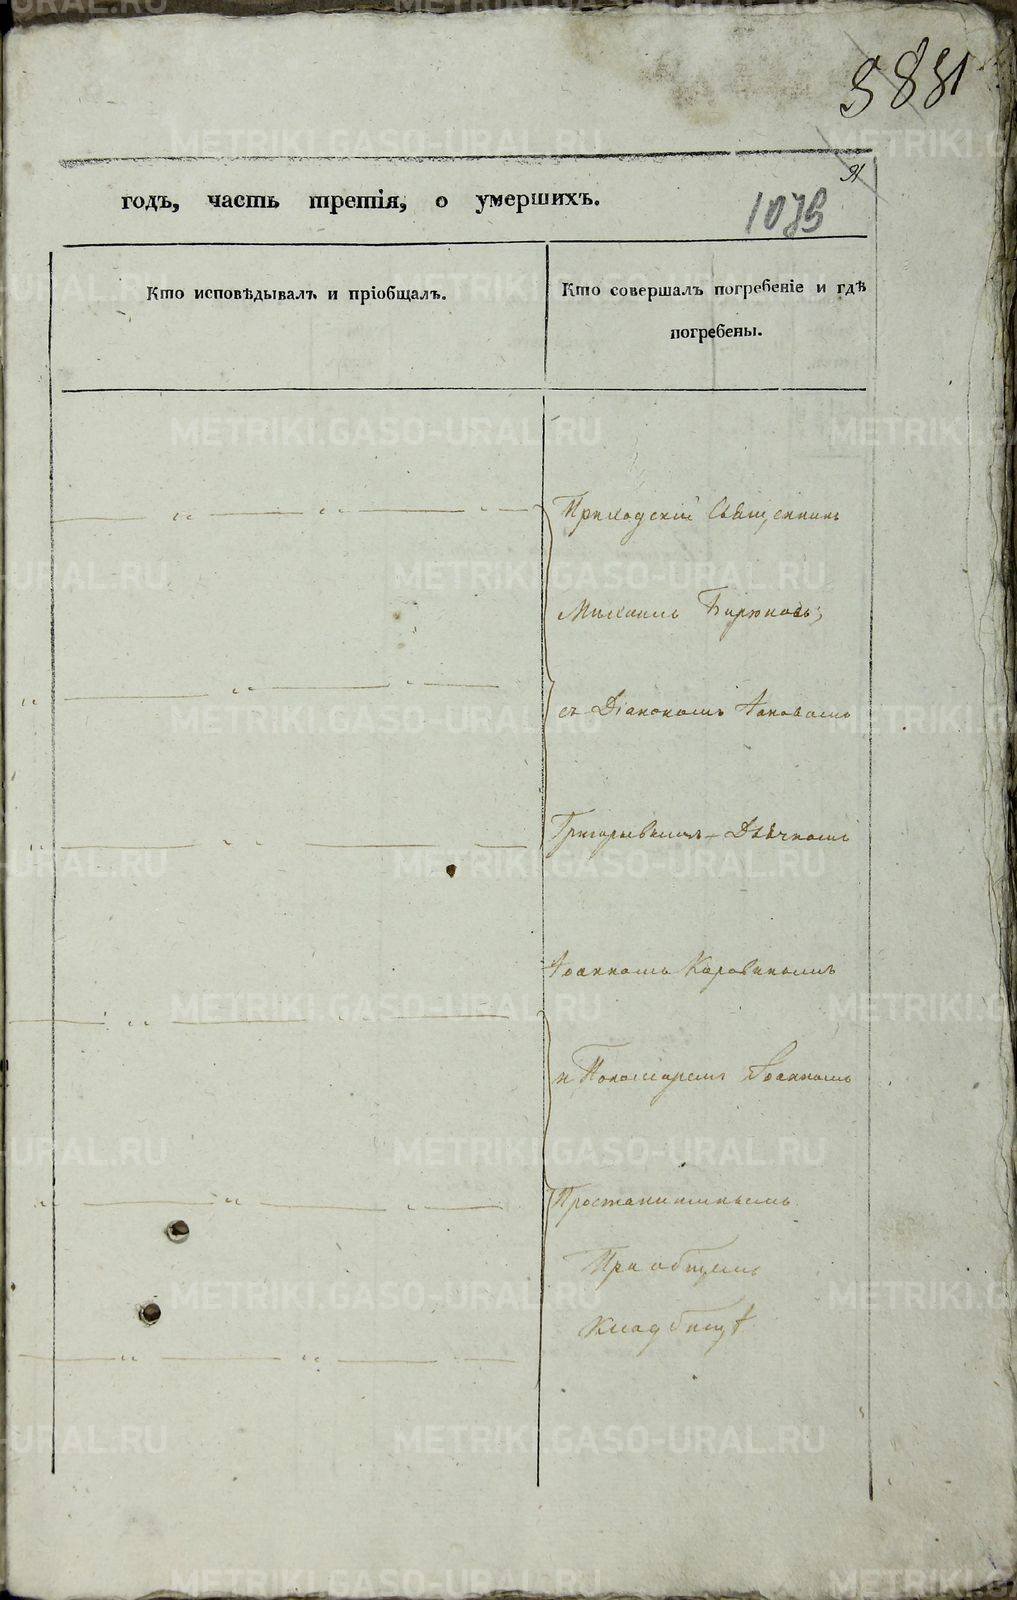 5851
91
годъ, часть третія, о умершихъ.
1075
Кто исповѣдывалъ и пріобщалъ.
Кто совершалъ погребеніе и гдѣ
погребены.
Приходскій Священникъ
Михаилъ Бирюковъ;
съ Діакономъ Іаковомъ
Григорьевымъ – Дьячкомъ
Іоанномъ Коровинымъ
и Пономаремъ Іоанномъ
При общемъ
кладбищѣ
METRIKI.GASO-URAL.RU